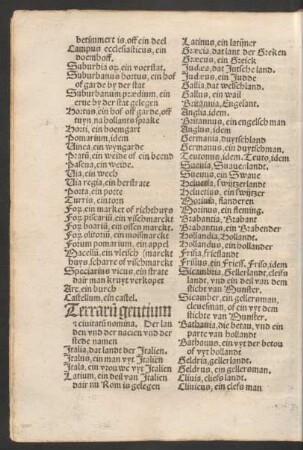 betimmert is, off ein deel
Campus ecclesiasticus, ein
doemhoff.
Suburbia orū, ein voerstat.
Suburbanus hortus, ein hof
of garde by der stat
Suburbanum prædium, ein
erue by der stat gelegen
Hortus, ein hof off garde, off
tuyn na hollantse sprake
Horti, ein boemgart
Pomarium, idem
Vinea, ein wyngarde
Pratū, ein weide of ein beend
Pascua, ein weide.
Via, ein wech
Via regia, ein herstrate
Porta, ein porte
Turris, ein torn
Forū, ein market of richsburg
Forū piscariū, ein vischmarckt
Forū boariū, ein ossen marckt.
Forū olitoriū, ein moesmarckt
Forum pomarium, ein appel
Macellū, ein vleisch marckt
huys. scharre of vischmarckt
Speciarius vicus, ein strate
dair man kruyt verkoopt
Arx, ein burch
Castellum, ein castel.
Terrarū gentium
⁊ ciuitatū nomina. Der lan
den vnd der nacien vnd der
stede namen
Italia, dat landt der Italien.
Italus, ein man vyt Italien
Itala, ein vrou we vyt Italien
Latium, ein deil van Italien
dair nu Rom is gelegen
Latinus, ein latyner
Græcia, dat lant der Greken
Græcus, ein Greick
Iudæa, dat Jutsche land.
Iudæus, ein Judde
Gallia, dat welschland.
Gallus, ein wail
Britannia, Engelant.
Anglia, idem.
Britannus, ein engelsch man
Anglus, idem
Germania, duytschland
Germanus, ein duytschman,
Teutonus, idem. Teuto, idem
Sueuia, Swauerlandt.
Sueuus, ein Swaue
Heluetia, switzerlandt
Heluetius, ein switzer
Morini, flanderen
Morinus, ein fleming.
Brabantia, Brabant
Brabantus, ein Brabender
Hollandia, Hollandt.
Hollandus, ein hollander
Frisia, frieslandt
Frisius, ein Frieß. Friso, idem
Sicambria, Gellerlandt, cleifs
landt, vnd ein deil van dem
sticht van Munster.
Sicamber, ein gellersman,
cleuesman, of ein vyt dem
stichte van Munster.
Bathauia, die betau, vnd ein
parte van hollandt
Bathouus, ein vyt der betou
of vyt hollandt
Geldria, geller landt.
Geldrus, ein gellersman.
Cliuia, cleifs landt.
Cliuicus, ein cleifs man